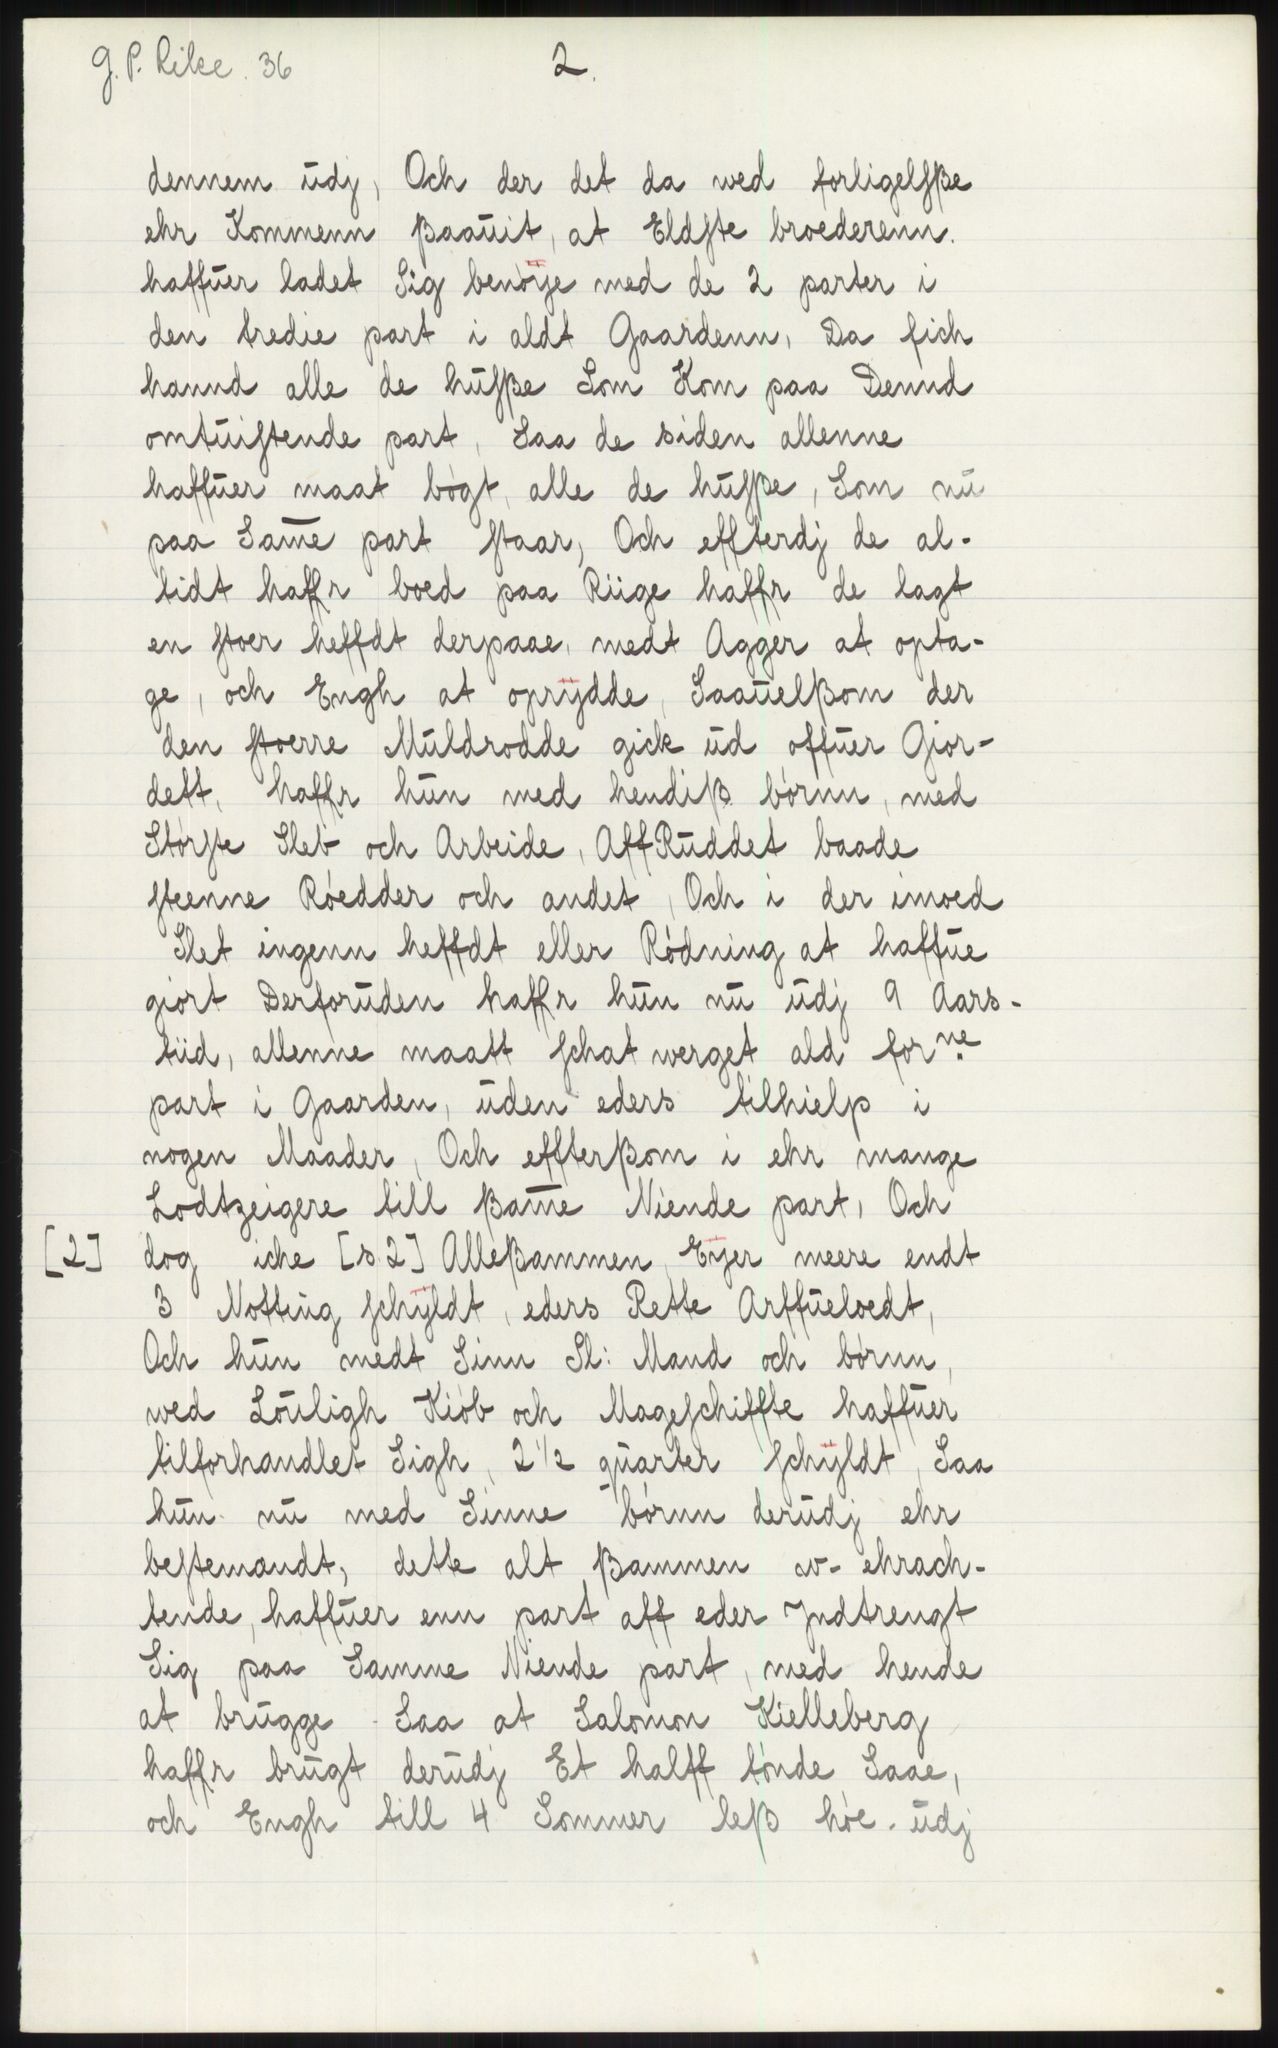 G. P. Rike. 36
2.
dennem ūdj, Och der det da wed forligelſße
ehr Kommenn ßaaūit, at Eldſte broederenn.
haffūer ladet Sig benöÿe med de 2 parter i
den tredie part i aldt Gaardenn, Da fich
hannd alle de hūſße Som Kom paa Dennd
omtūiſtende part, Saa de siden allenne
haffūer maat bögt, alle de hūſße, Som nū
paa Sam̄e part ſtaar, Och effterdj de al-
tidt haffr boed paa Riige haffr de lagt
en ſtoer heffdt derpaae, medt Agger at opta-
ge, och Engh at oprÿdde, Saaūelßom der
den ſtoerre Mūldrodde gick ūd offūer Gior-
dett, haffr hūn med hendiß börnn, med
Störſte Sleb och Arbeide, AffRūddet baade
ſteenne Röedder och andet, Och i der imoed
Slet ingenn heffdt eller Rödning at haffūe
giört Derforūden haffr hūn nū ūdj 9 Aars-
tiid, allenne maatt ſchat werget ald forne
part i Gaarden, ūden eders tilhielp i
nogen Maader, Och effterßom i ehr mange
Lodtzeigere till ßam̄e Niende part, Och
[2] dog iche [s. 2] Alleßammen Eÿer meere endt
3 Notting ſchÿldt, eders Rette Arffūeloedt,
Och hūn medt Sinn Sl: Mand och börnn,
wed Loūligh Kiöb och Mageſchiffte haffūer
tilforhandlet Sigh, 2 1/2 qūarter ſchÿldt, Saa
hūn nū med Sinne börnn derūdj ehr
beſtemandt, dette alt ßammen w- ehrach-
tende, haffūer enn part aff eder Jndtrengt
Sig paa Samme Niende part, med hende
at brūgge Saa at Salomon Kielleberg
haffr brūgt derūdj Et halff tönde Saae,
och Engh till 4 Sommer leß höe. ūdj